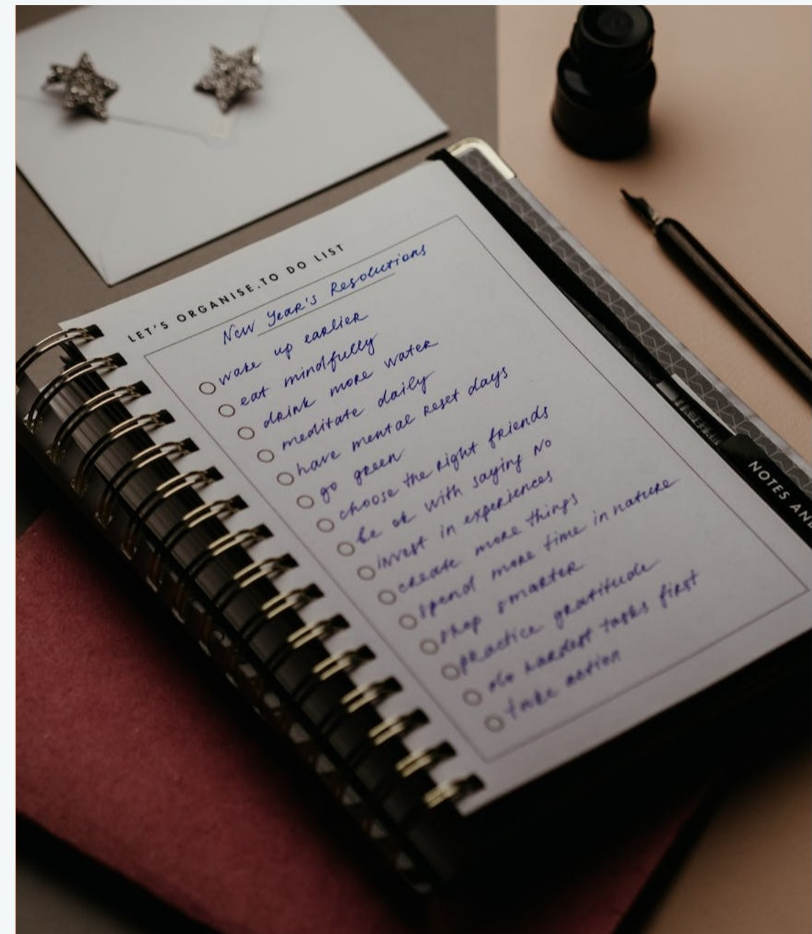 LET'S ORGANISE.TO DO LIST
New Year's Resolutions
wake up earlier
eat mindfully
drink more water
meditate daily
have mental reset days
go green
choose the right friends
be ok with saying No
invest in experiences
create more things
spend more time in nature
shop smarter
practice gratitude
do hardest tasks first
take action
NOTES AN